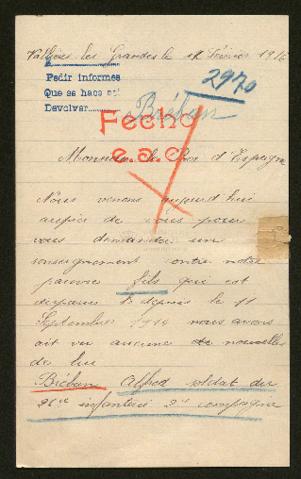 Vallières les Grandes le 12 février 1916
Pedir informes
Que se hace así
Devolver
2970
Bréban
Fecho
e.a.c.
Monsieur le Roi d'Espagne
Nous venons aujourd'hui
auprès de vous pour
vous demander un
renseignement entre notre
pauvre fils qui est
disparue depuis le 11
Septembre 1914 nous avons
ait eu aucune de nouvelles
de lui
Bréban Alfred soldat du
infanterie 2e compagnie